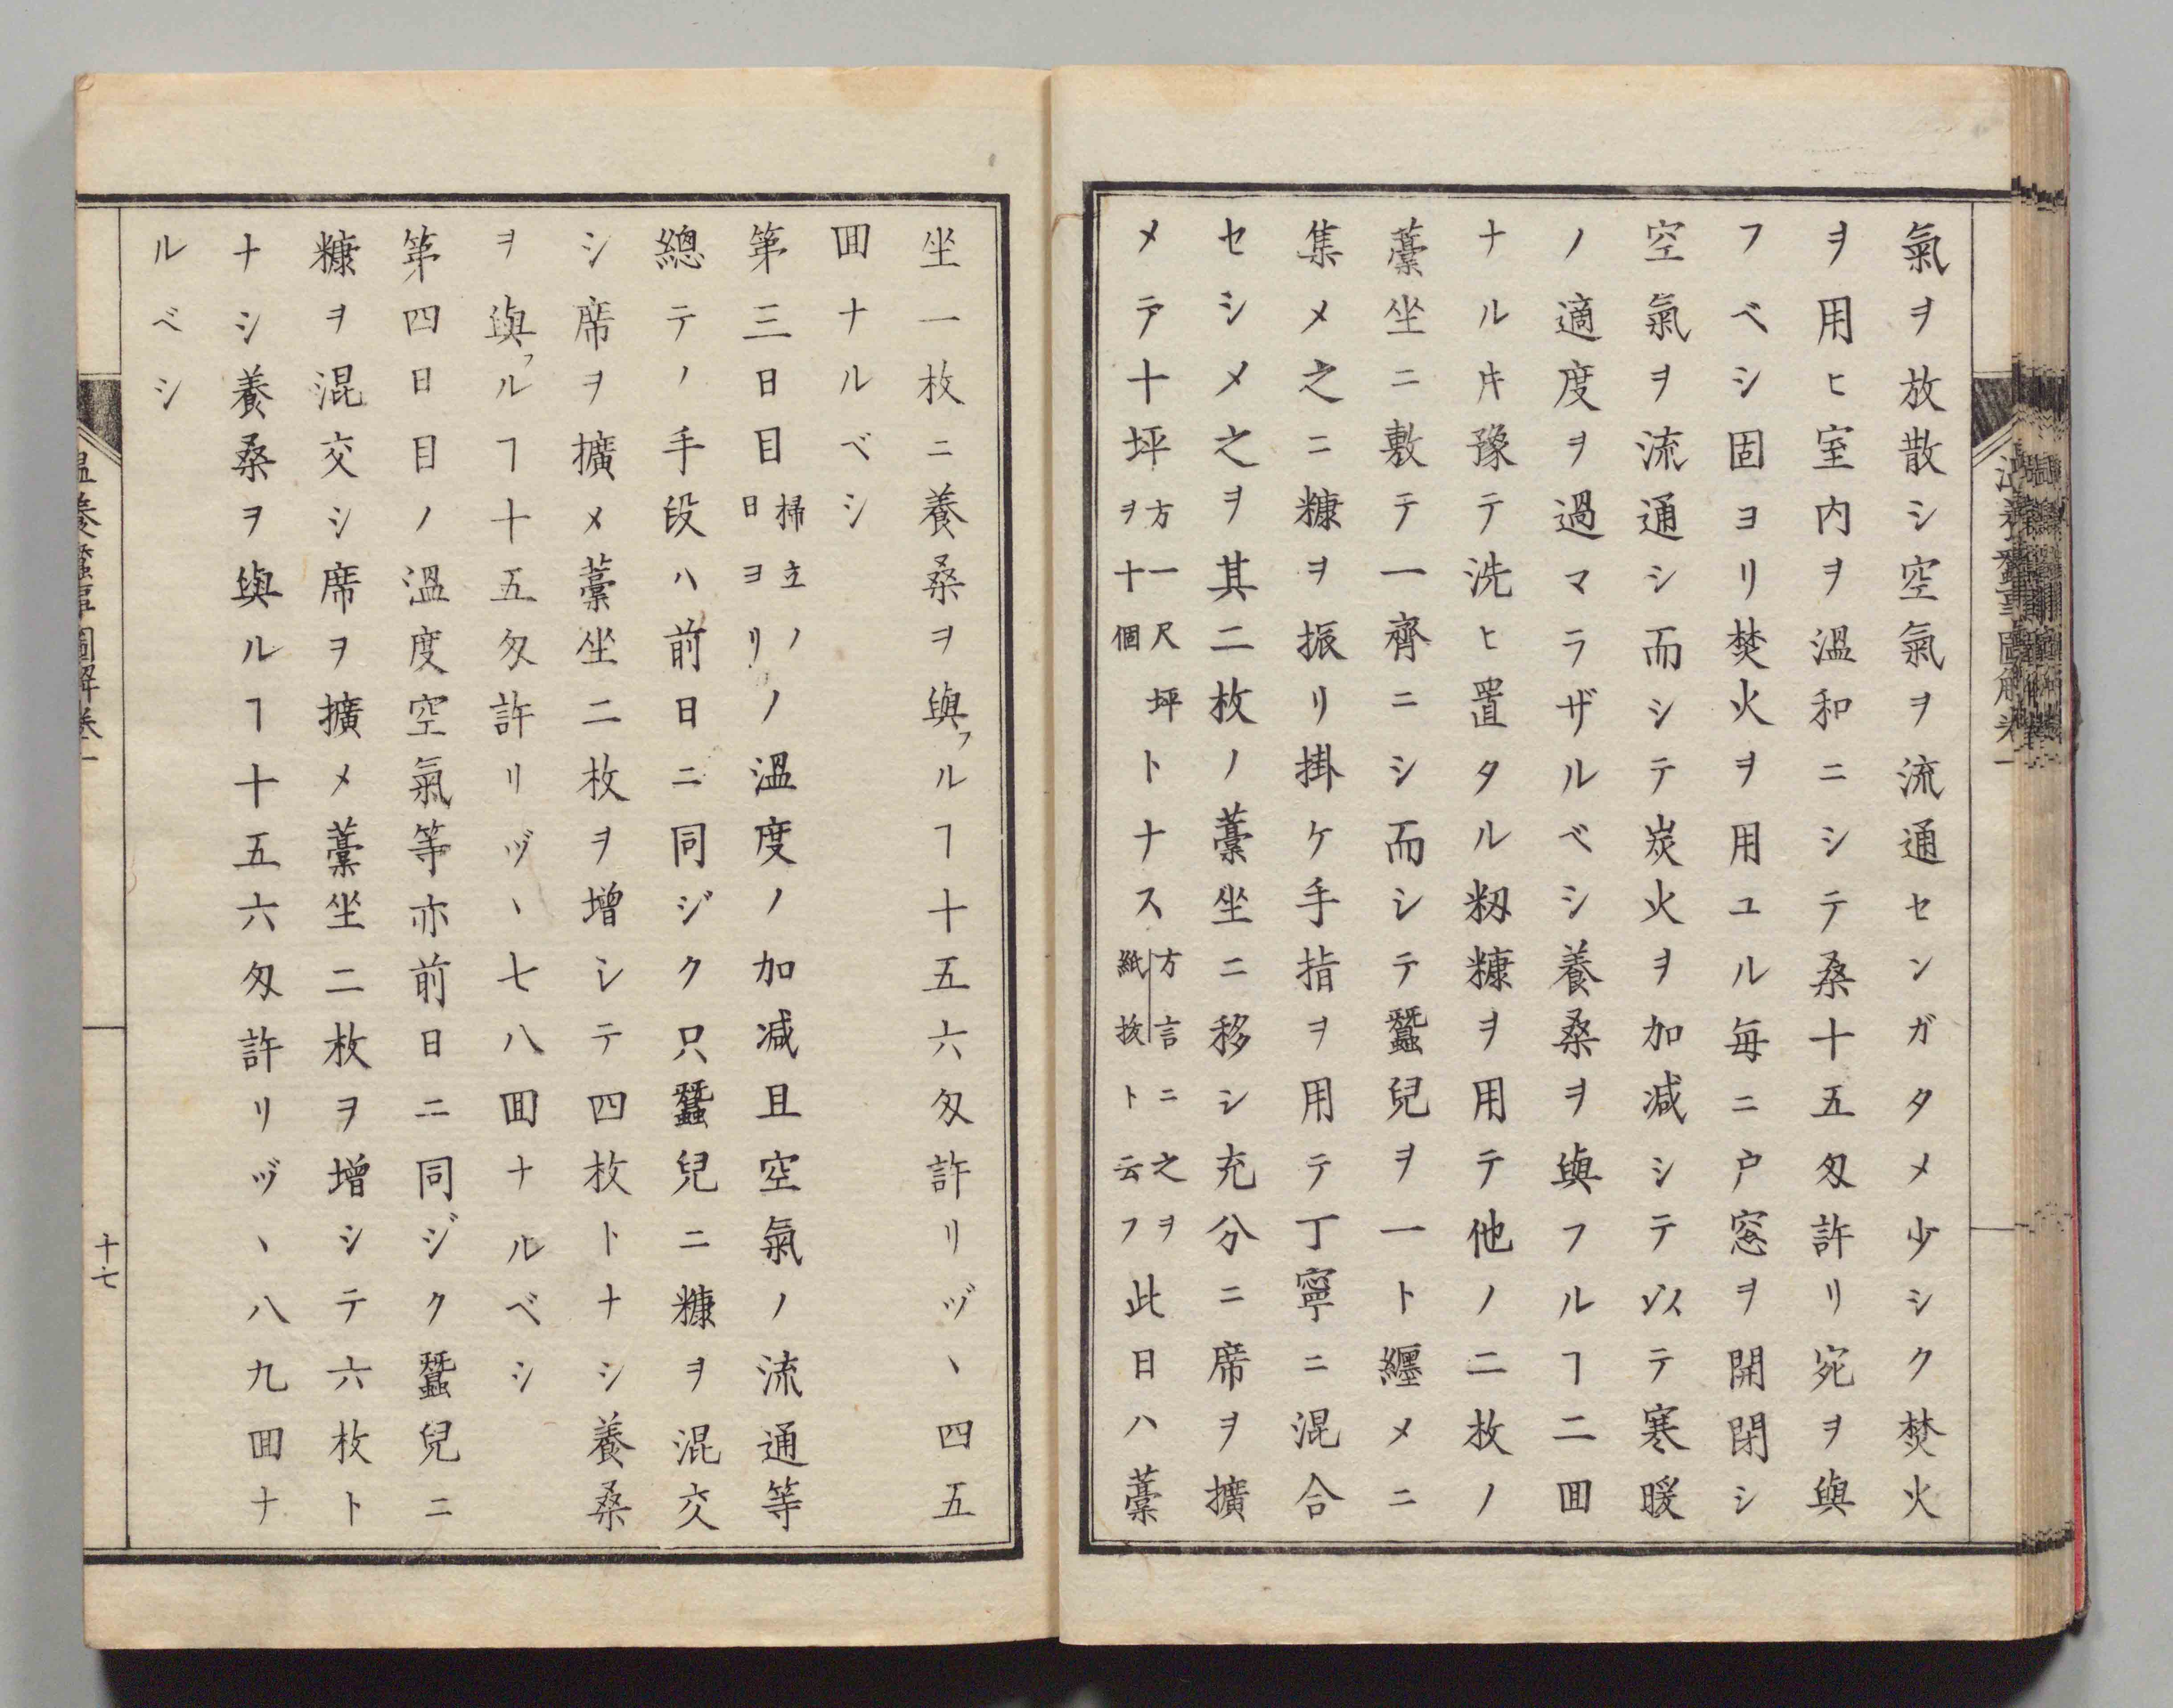 氣ヲ放散シ空氣ヲ流通センガタメ少シク焚火
ヲ用ヒ室内ヲ溫和ニシテ桑十五匁許リ宛ヲ與
フベシ固ヨリ焚火ヲ用ユル毎ニ戸窓ヲ開閉シ
空氣ヲ流通シ而シテ炭火ヲ加减シテ以テ寒暖
ノ適度ヲ過マラザルベシ養桑ヲ與フルヿ二囬
ナルトキ豫テ洗ヒ置タル籾糠ヲ用テ他ノ二枚ノ
藁坐ニ敷テ一齊ニシ而シテ蠶兒ヲ一ト纒メニ
集メ之ニ糠ヲ振リ掛ケ手指ヲ用テ丁寧ニ混合
セシメ之ヲ其二枚ノ藁坐ニ移シ充分ニ席ヲ擴
メテ十坪方一尺坪ヲ十個トナス方言ニ之ヲ紙抜ト云フ此日ハ藁
坐一枚ニ養桑ヲ與フルヿ十五六匁許リヅヽ四五
囬ナルベシ
第三日目掃立ノ日ヨリノ溫度ノ加减且空氣ノ流通等
總テノ手段ハ前日ニ同ジク只蠶兒ニ糠ヲ混交
シ席ヲ擴メ藁坐二枚ヲ增シテ四枚トナシ養桑
ヲ與フルヿ十五匁許リヅヽ七八囬ナルベシ
第四日目ノ溫度空氣等亦前日ニ同ジク蠶兒ニ
糠ヲ混交シ席ヲ擴メ藁坐二枚ヲ增シテ六枚ト
ナシ養桑ヲ與ルヿ十五六匁許リヅヽ八九囬ナ
ルベシ
十七